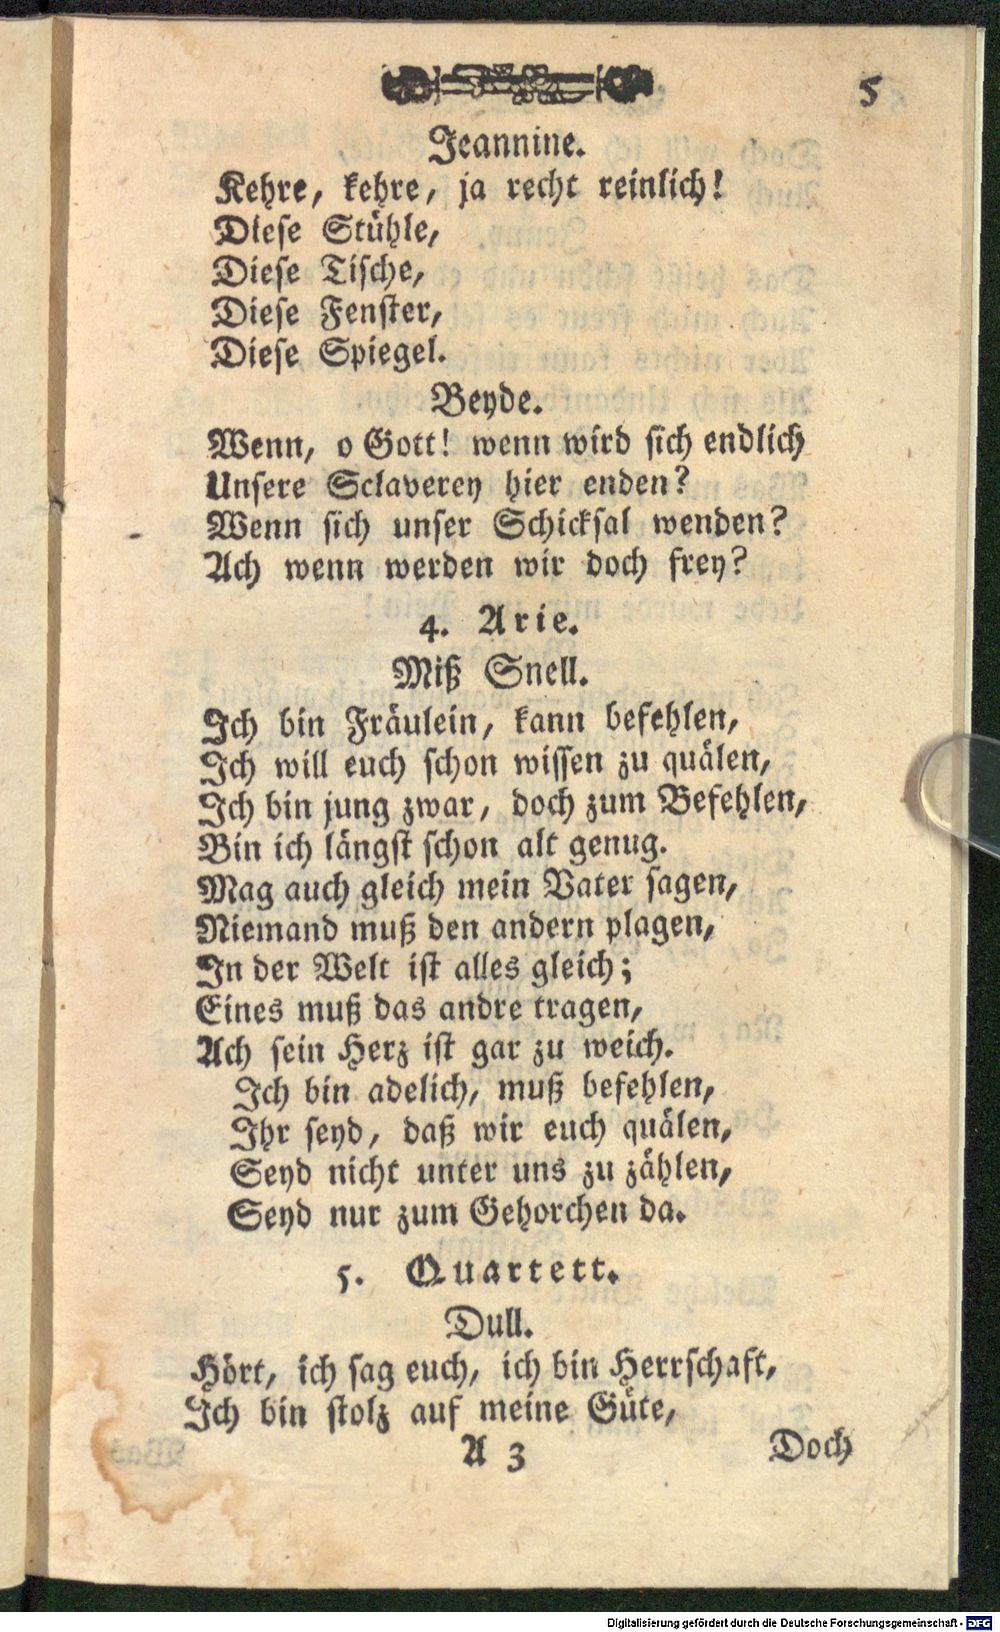 5
Jeannine.
Kehre, kehre, ja recht reinlich!
Diese Stühle,
Diese Tische,
Diese Fenster,
Diese Spiegel.
Beyde.
Wenn, o Gott! wenn wird sich endlich
Unsere Sclaverey hier enden?
Wenn sich unser Schicksal wenden?
Ach wenn werden wir doch frey?
4. Arie.
Miß Snell.
Ich bin Fräulein, kann befehlen,
Ich will euch schon wissen zu quälen,
Ich bin jung zwar, doch zum Befehlen,
Bin ich längst schon alt genug.
Mag auch gleich mein Vater sagen,
Niemand muß den andern plagen,
In der Welt ist alles gleich;
Eines muß das andre tragen,
Ach sein Herz ist gar zu weich.
Ich bin adelich, muß befehlen,
Ihr seyd, daß wir euch quälen,
Seyd nicht unter uns zu zählen,
Seyd nur zum Gehorchen da.
5. Quartett.
Dull.
Hört, ich sag euch, ich bin Herrschaft,
Ich bin stolz auf meine Güte,
A 3 Doch
Digitalisierung gefördert durch die Deutsche Forschungsgemeinschaft - DFG